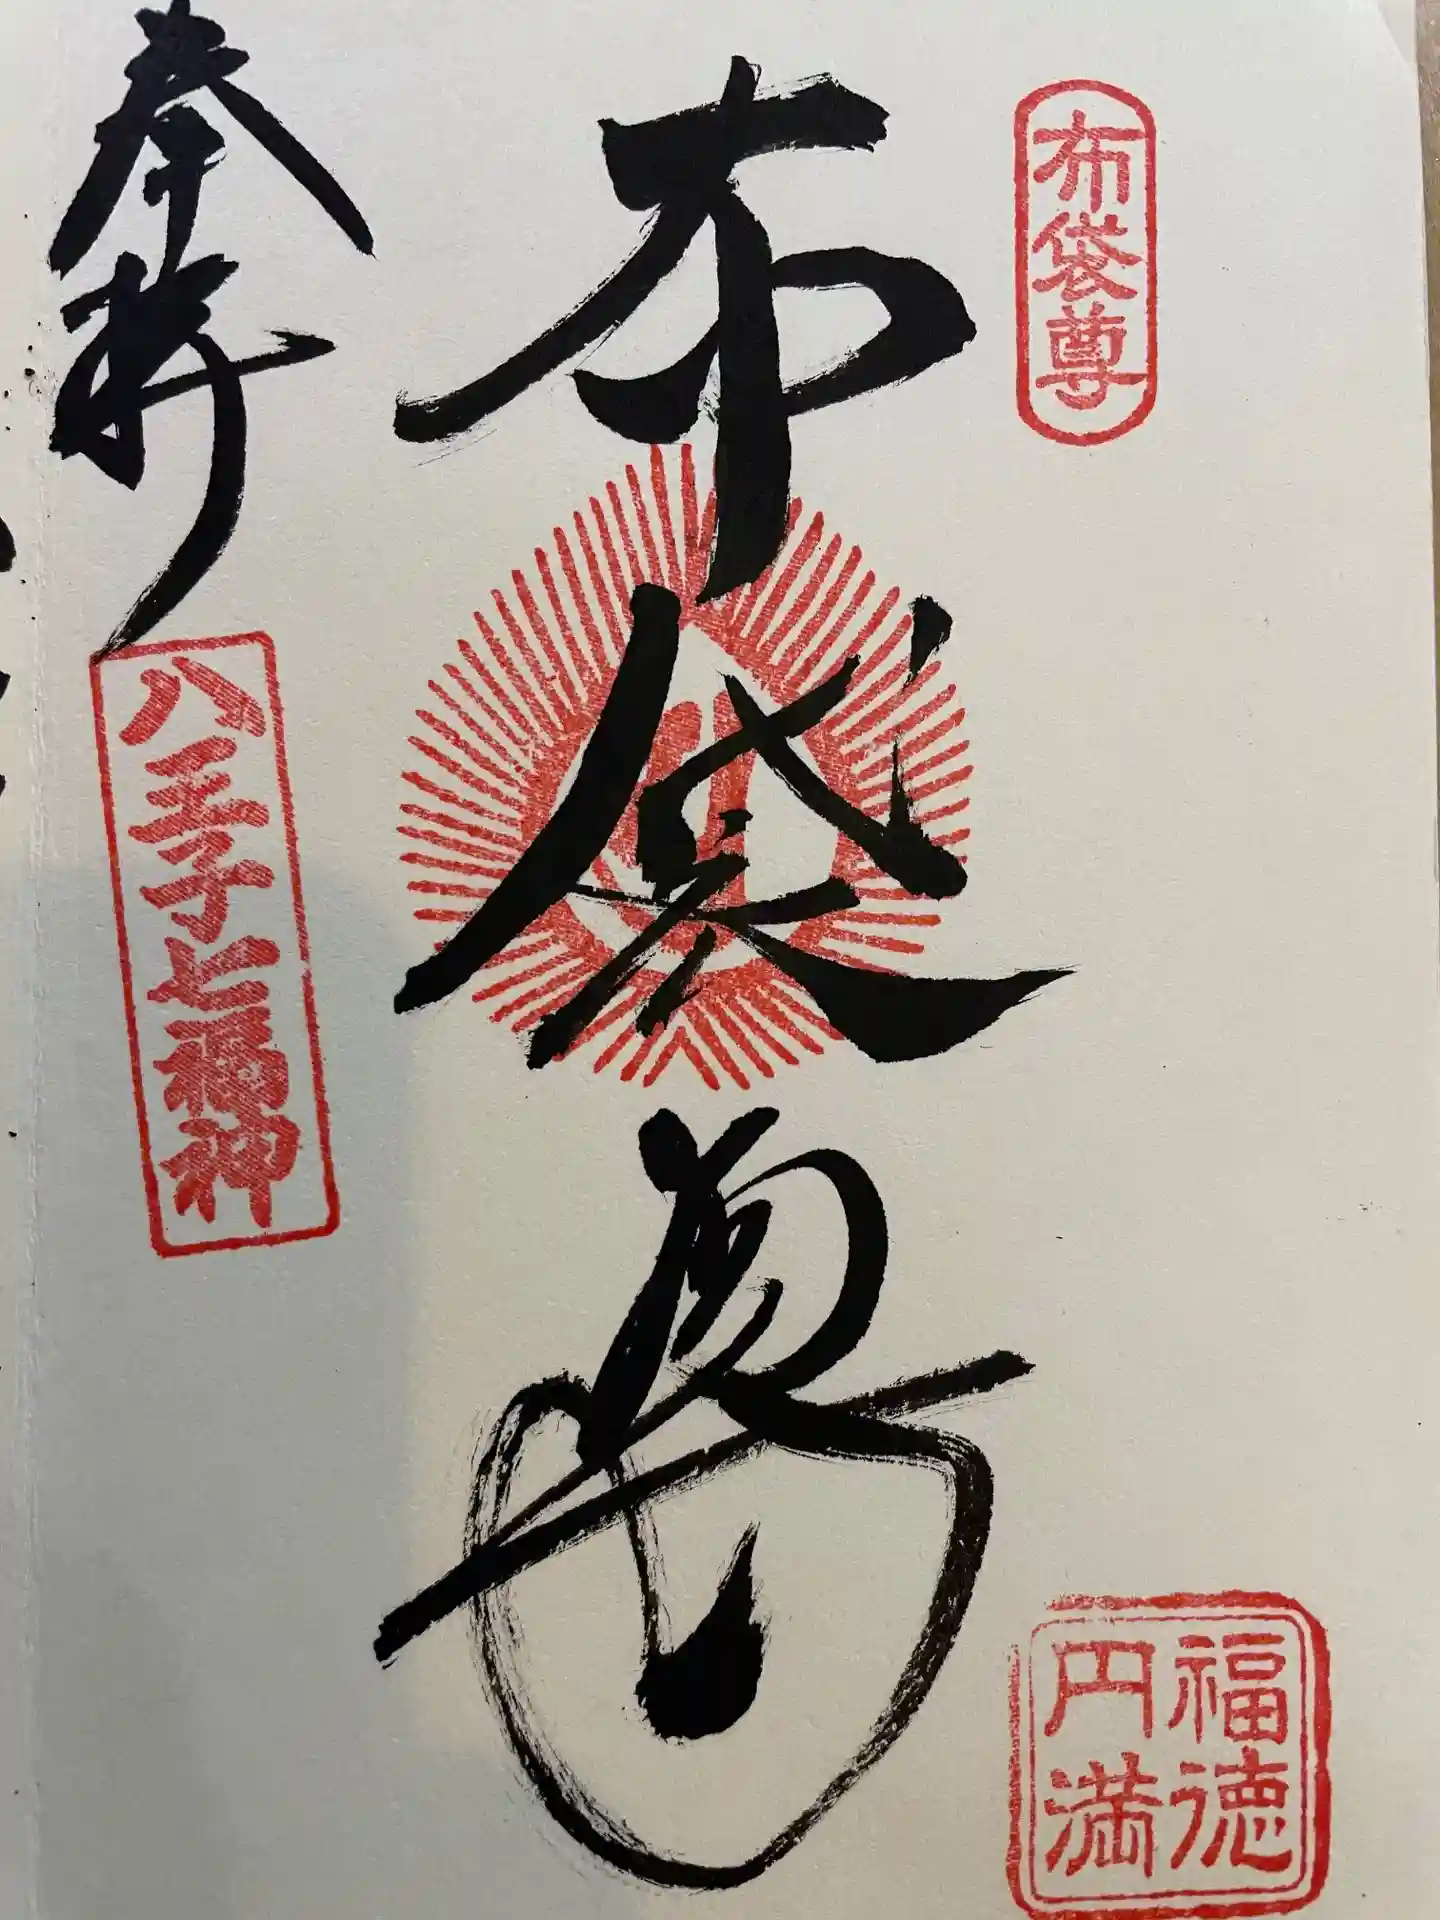 布袋尊
福徳
円満
布袋尊
奉拝
八王子七福神